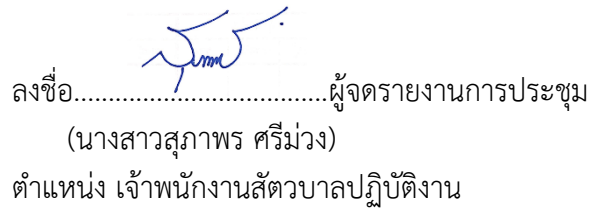 ลงชื่อ....................................ผู้จดรายงานการประชุม
(นางสาวสุภาพร ศรีม่วง)
ตำแหน่ง เจ้าพนักงานสัตวบาลปฏิบัติงาน